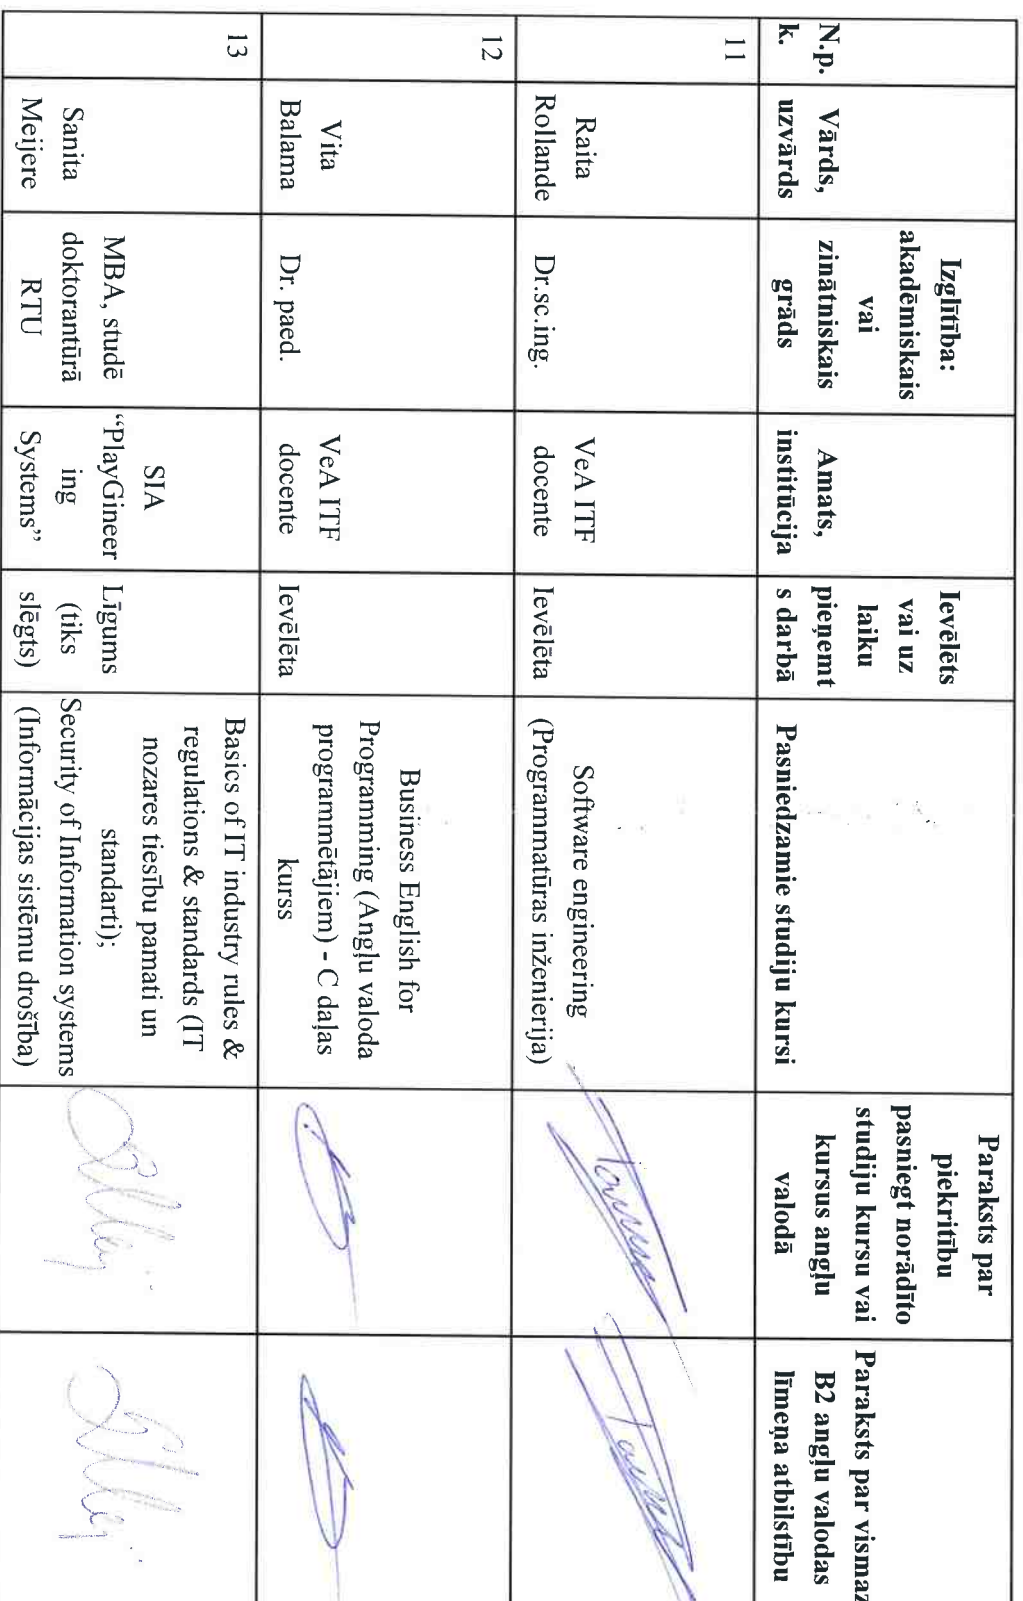 N.p.
k.
Vārds,
uzvārds
Izglītība:
akadēmiskais
vai
zinātniskais
grāds
Amats,
institūcija
Ievēlēts
vai uz
laiku
pieņemt
s darbā
Pasniedzamie studiju kursi
Paraksts par
piekritību
pasniegt norādīto
studiju kursu vai
kursus angļu
valodā
Paraksts par vismaz
B2 angļu valodas
līmeņa atbilstību
11
Raita
Rollande
Dr.sc.ing.
VeA ITF
docente
Ievēlēta
Software engineering
(Programmatūras inženierija)
12
Vita
Balama
Dr. paed.
VeA ITF
docente
Ievēlēta
Business English for
Programming (Angļu valoda
programmētājiem) - C daļas
kurss
13
Sanita
Meijere
MBA, studē
doktorantūrā
RTU
SIA
“PlayGineer
ing
Systems”
Līgums
(tiks
slēgts)
Basics of IT industry rules &
regulations & standards (IT
nozares tiesību pamati un
standarti);
Security of Information systems
(Informācijas sistēmu drošība)